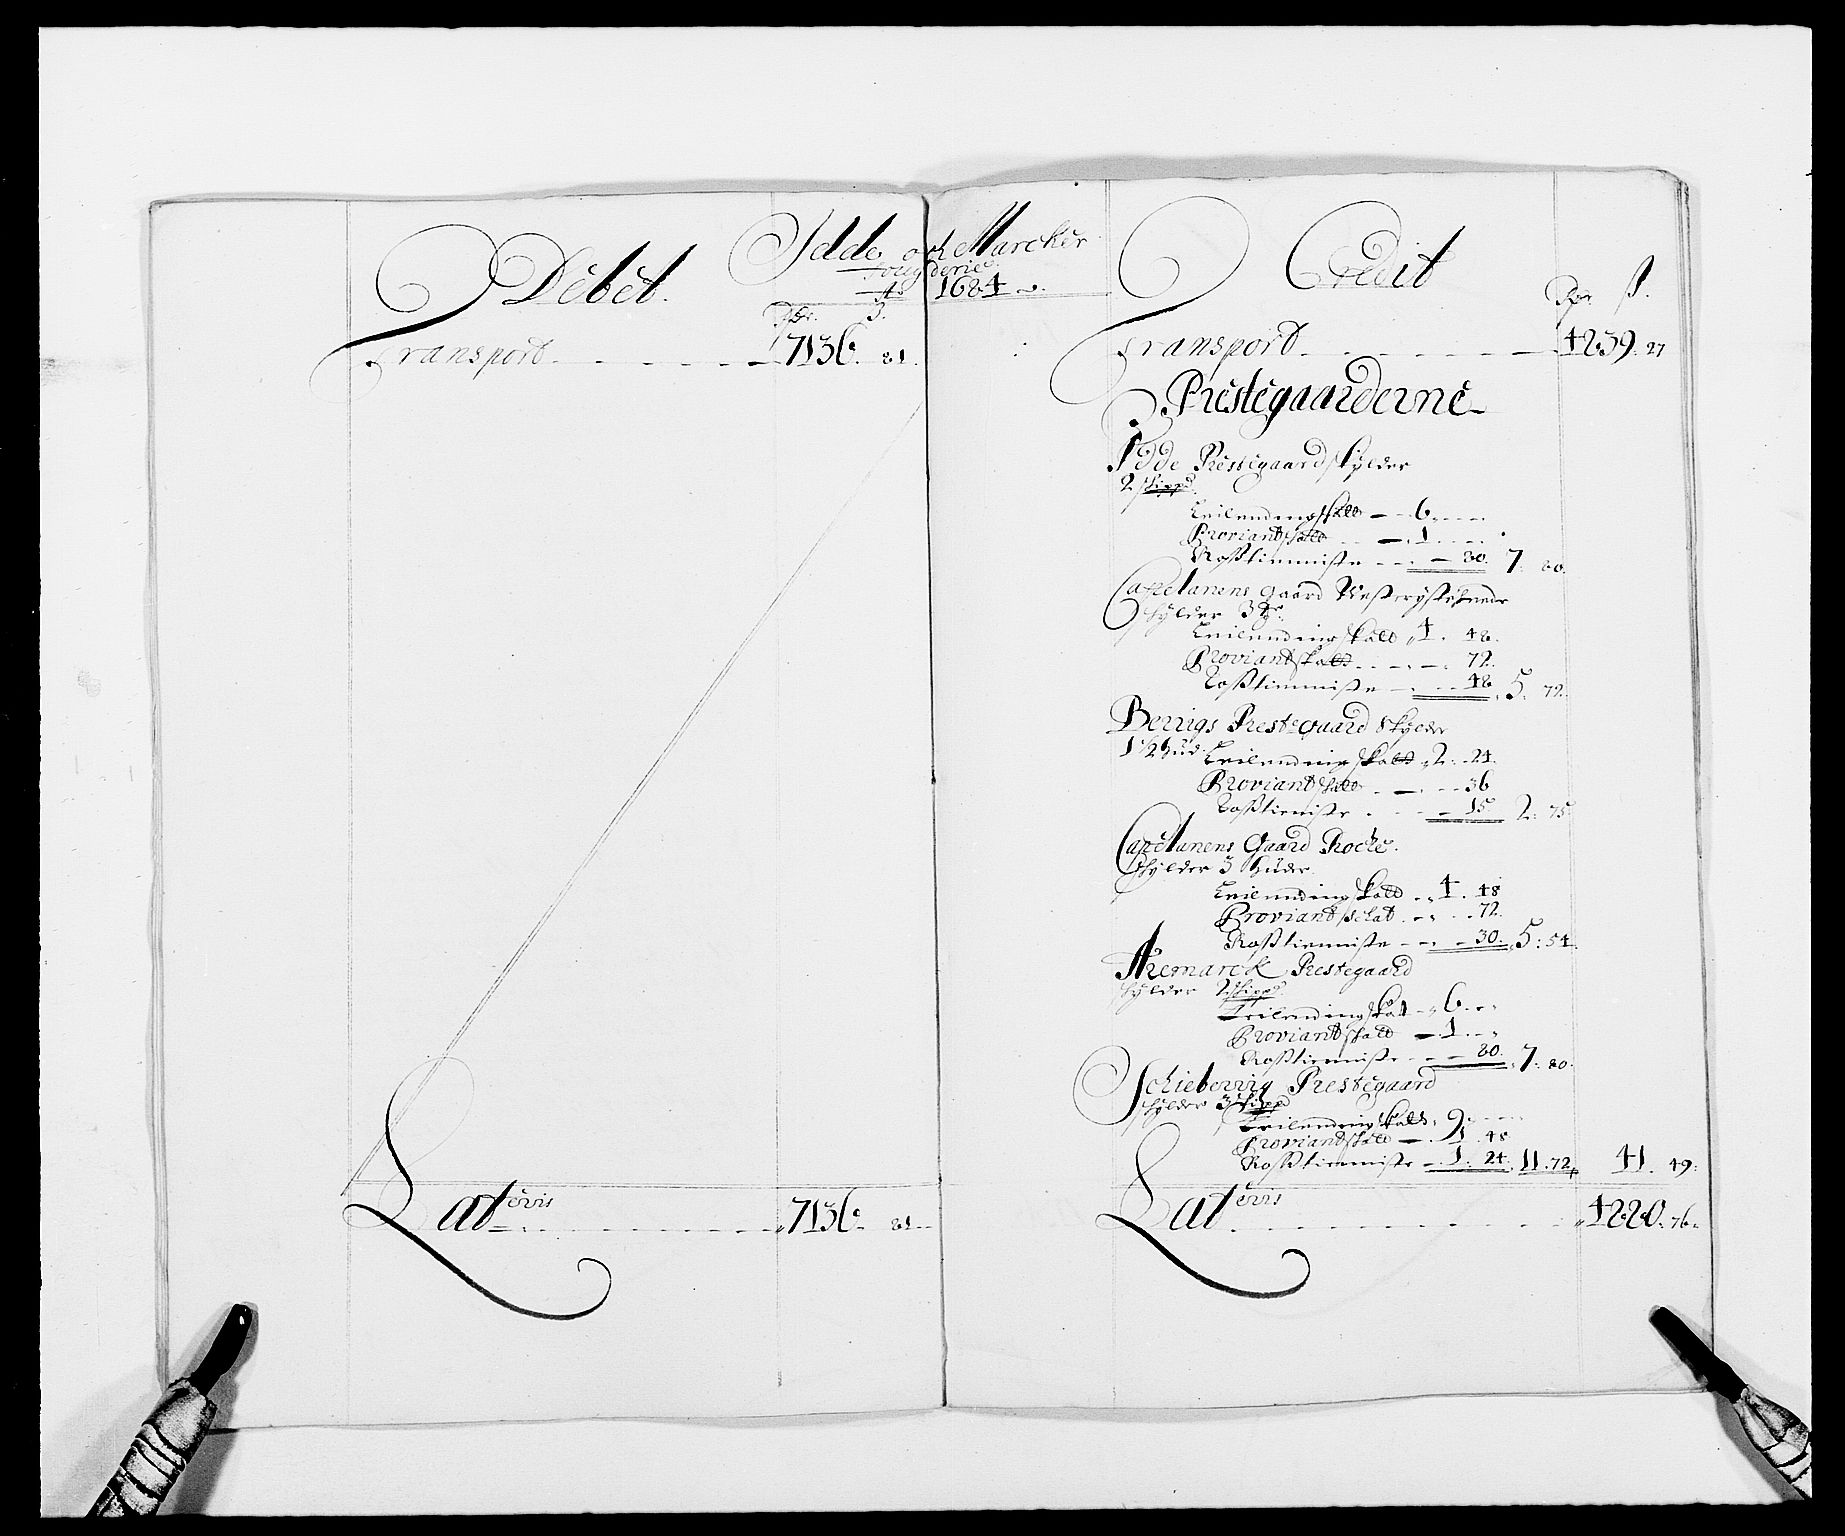 Debet.
Idde och Marcker
fougderie
Ao 1684
Rdr. ß.
Transport 7136. 81.
Lateris 7136. 81
Credit
Rdr. ß.
Transport 4239. 27
Prestegaarderne
Idde Prestegaard skylder
2 skippd.
Leilendingskatt 6.
Proviantskatt 1.
Rosstienniste 80. 7. 80.
Capelanens gaard
skylder 3
Leilendingskatt 4. 48.
Proviantskatt 72.
Rosstienniste 48. 5. 72.
Bergs Prestegaard Skylder
1 1/2 hud. Leilendingskatt 2. 24.
Proviantskatt 36
Rosstienniste 15 2. 75
Capelanens Gaard Rocke.
skylder 3 huder
Leilendingskatt 4. 48
Proviantschat 72.
Rosstienniste 30. 5. 54.
Aremarck Prestegaard
skylder 2 skippd.
Leilendingskat 6.
Proviantskatt 1.
Rosstienniste 80. 7. 80.
Schieberrig Prestegaard
skylder 3 skippd
Leilendingskatt 9.
Proviantskatt 1. 48
Rosstienniste 1. 24. 11. 72. 41. 49.
Lateris 4280. 76.